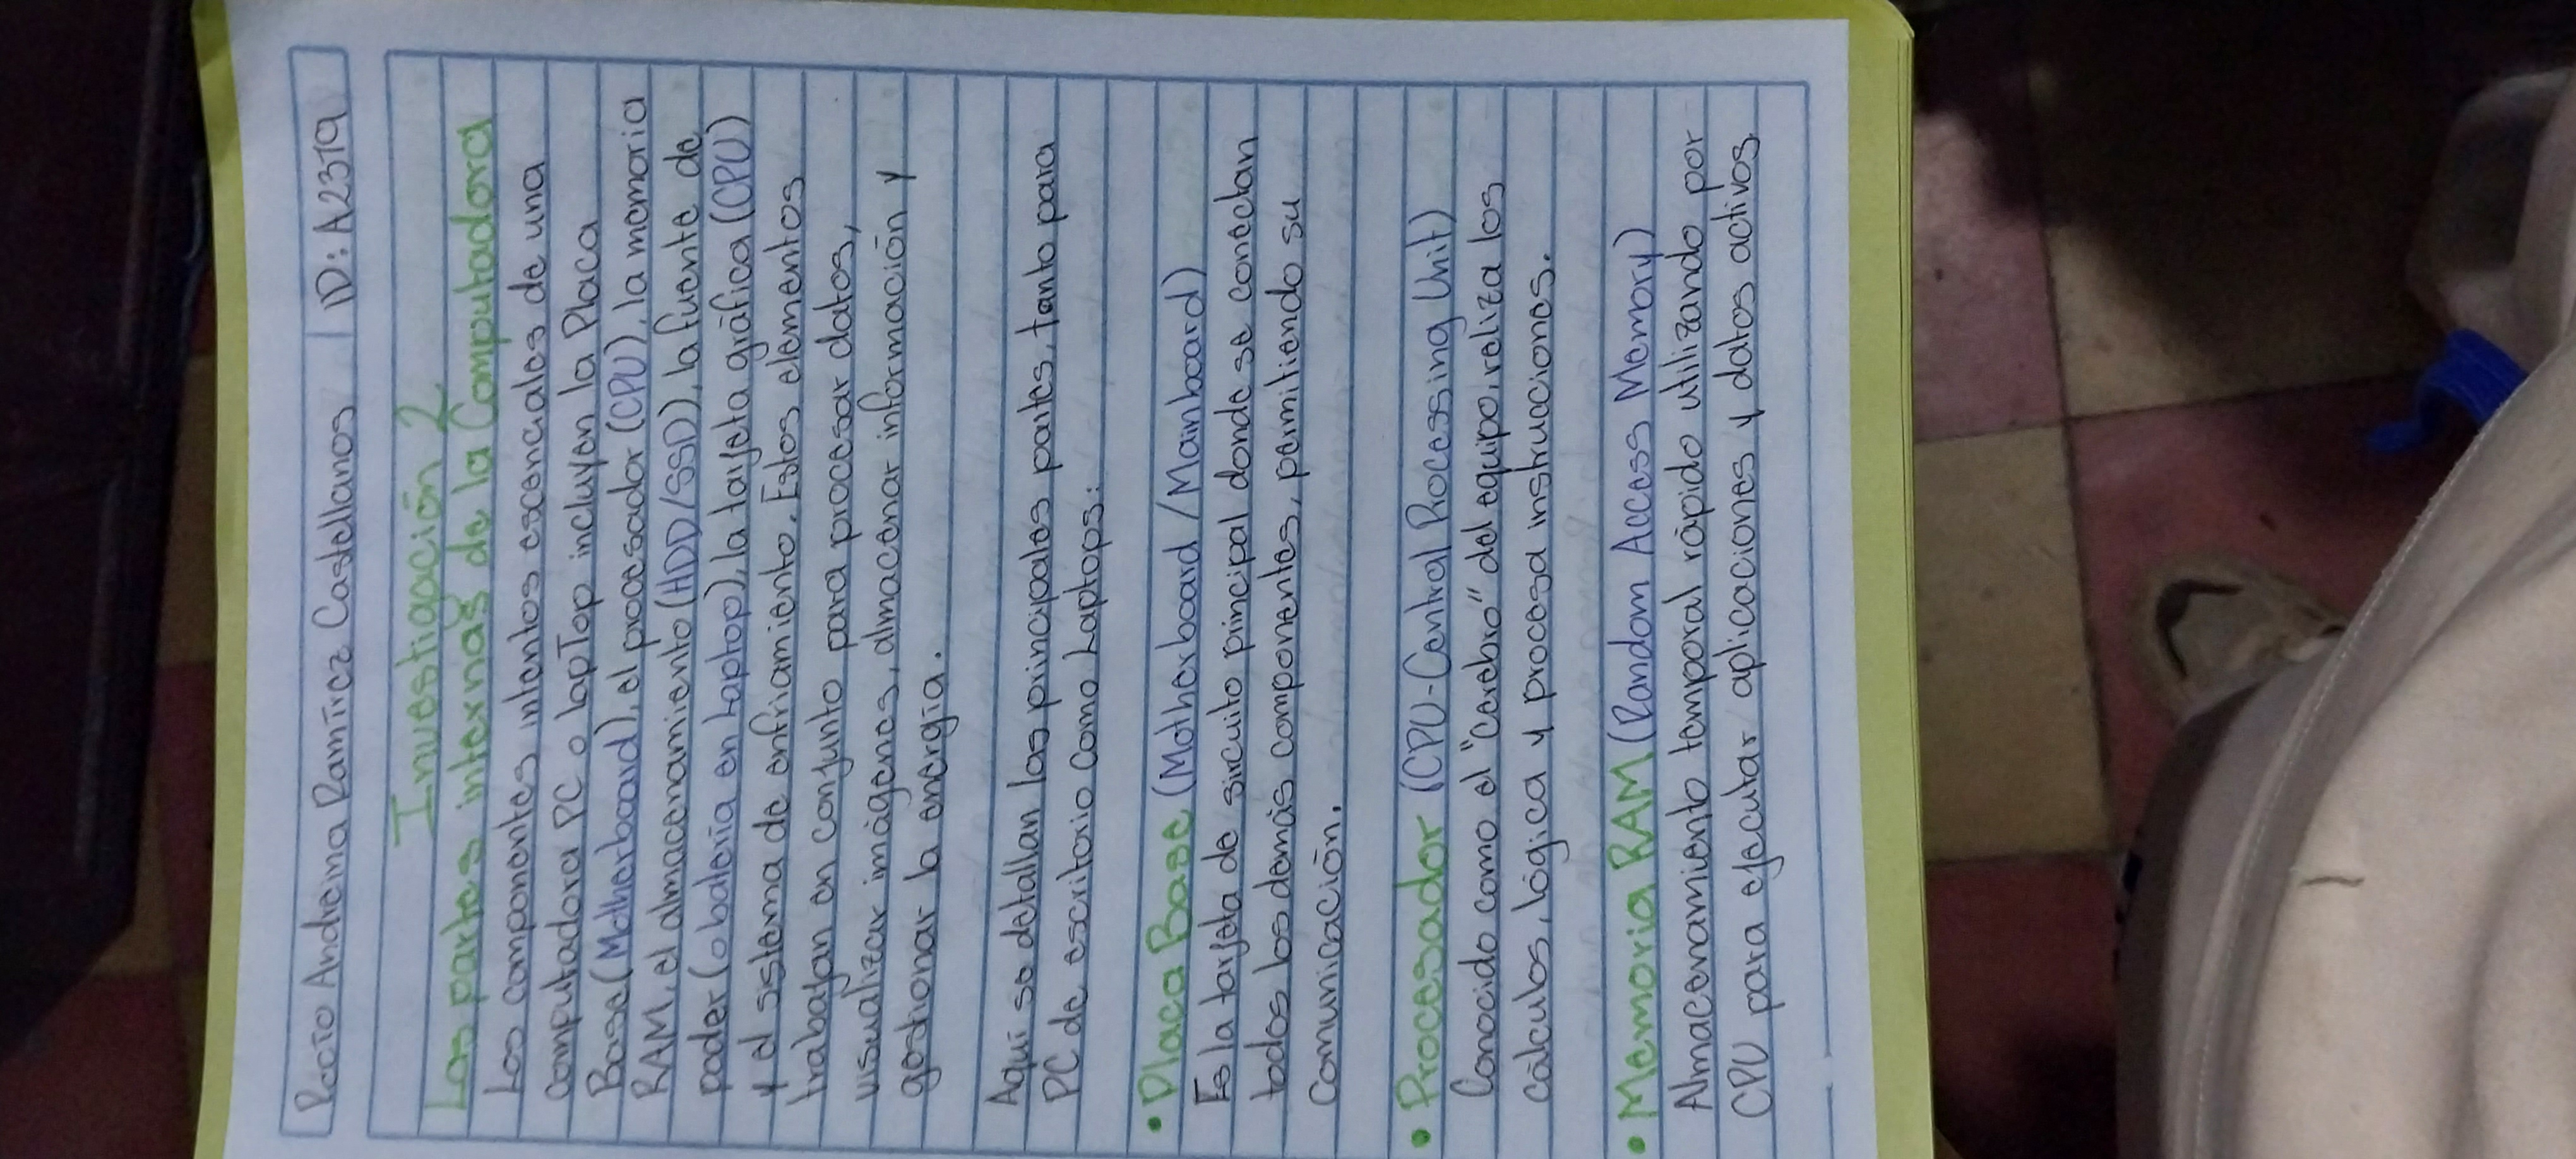 Rocío Andreina Ramírez Castellanos | ID: A2379
Investigación 2
Las partes internas de la Computadora
Los componentes intentos escenciales de una
computadora PC o lapTop incluyen la Placa
Base (Motherboard), el procesador (CPU), la memoria
RAM, el almacenamiento (HDD/SSD), la fuente de
poder (o batería en Laptop), la tarjeta gráfica (CPU)
y el sistema de enfriamiento. Estos elementos
trabajan en conjunto para procesar datos,
visualizar imágenes, almacenar información y
gestionar la energía.
Aquí se detallan las principales partes, tanto para
PC de escritorio como Laptops:
• Placa Base (Motherboard / Mainboard)
Es la tarjeta de sircuito principal donde se conectan
todos los demás componentes, permitiendo su
Comunicación.
• Procesador (CPU-Central Processing Unit)
Conocido como el "cerebro" del equipo, reliza los
cálculos, lógica y procesa instrucciones.
• Memoria RAM (Random Access Memory)
Almacenamiento temporal rápido utilizando por
CPU para ejecutar aplicaciones y datos activos